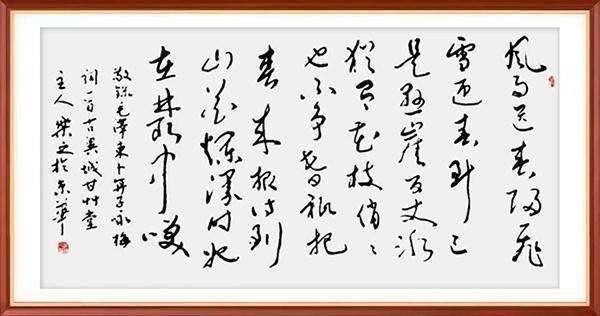 風雨送春归飛
雪迎春到已
是懸崖百丈冰
猶有花枝俏〻
也不争春祇把
春来報待到
山花爛漫时她
在叢中笑
敬錄毛澤東卜算子咏梅
词一首古冀城甘艸堂
主人樂之於京華